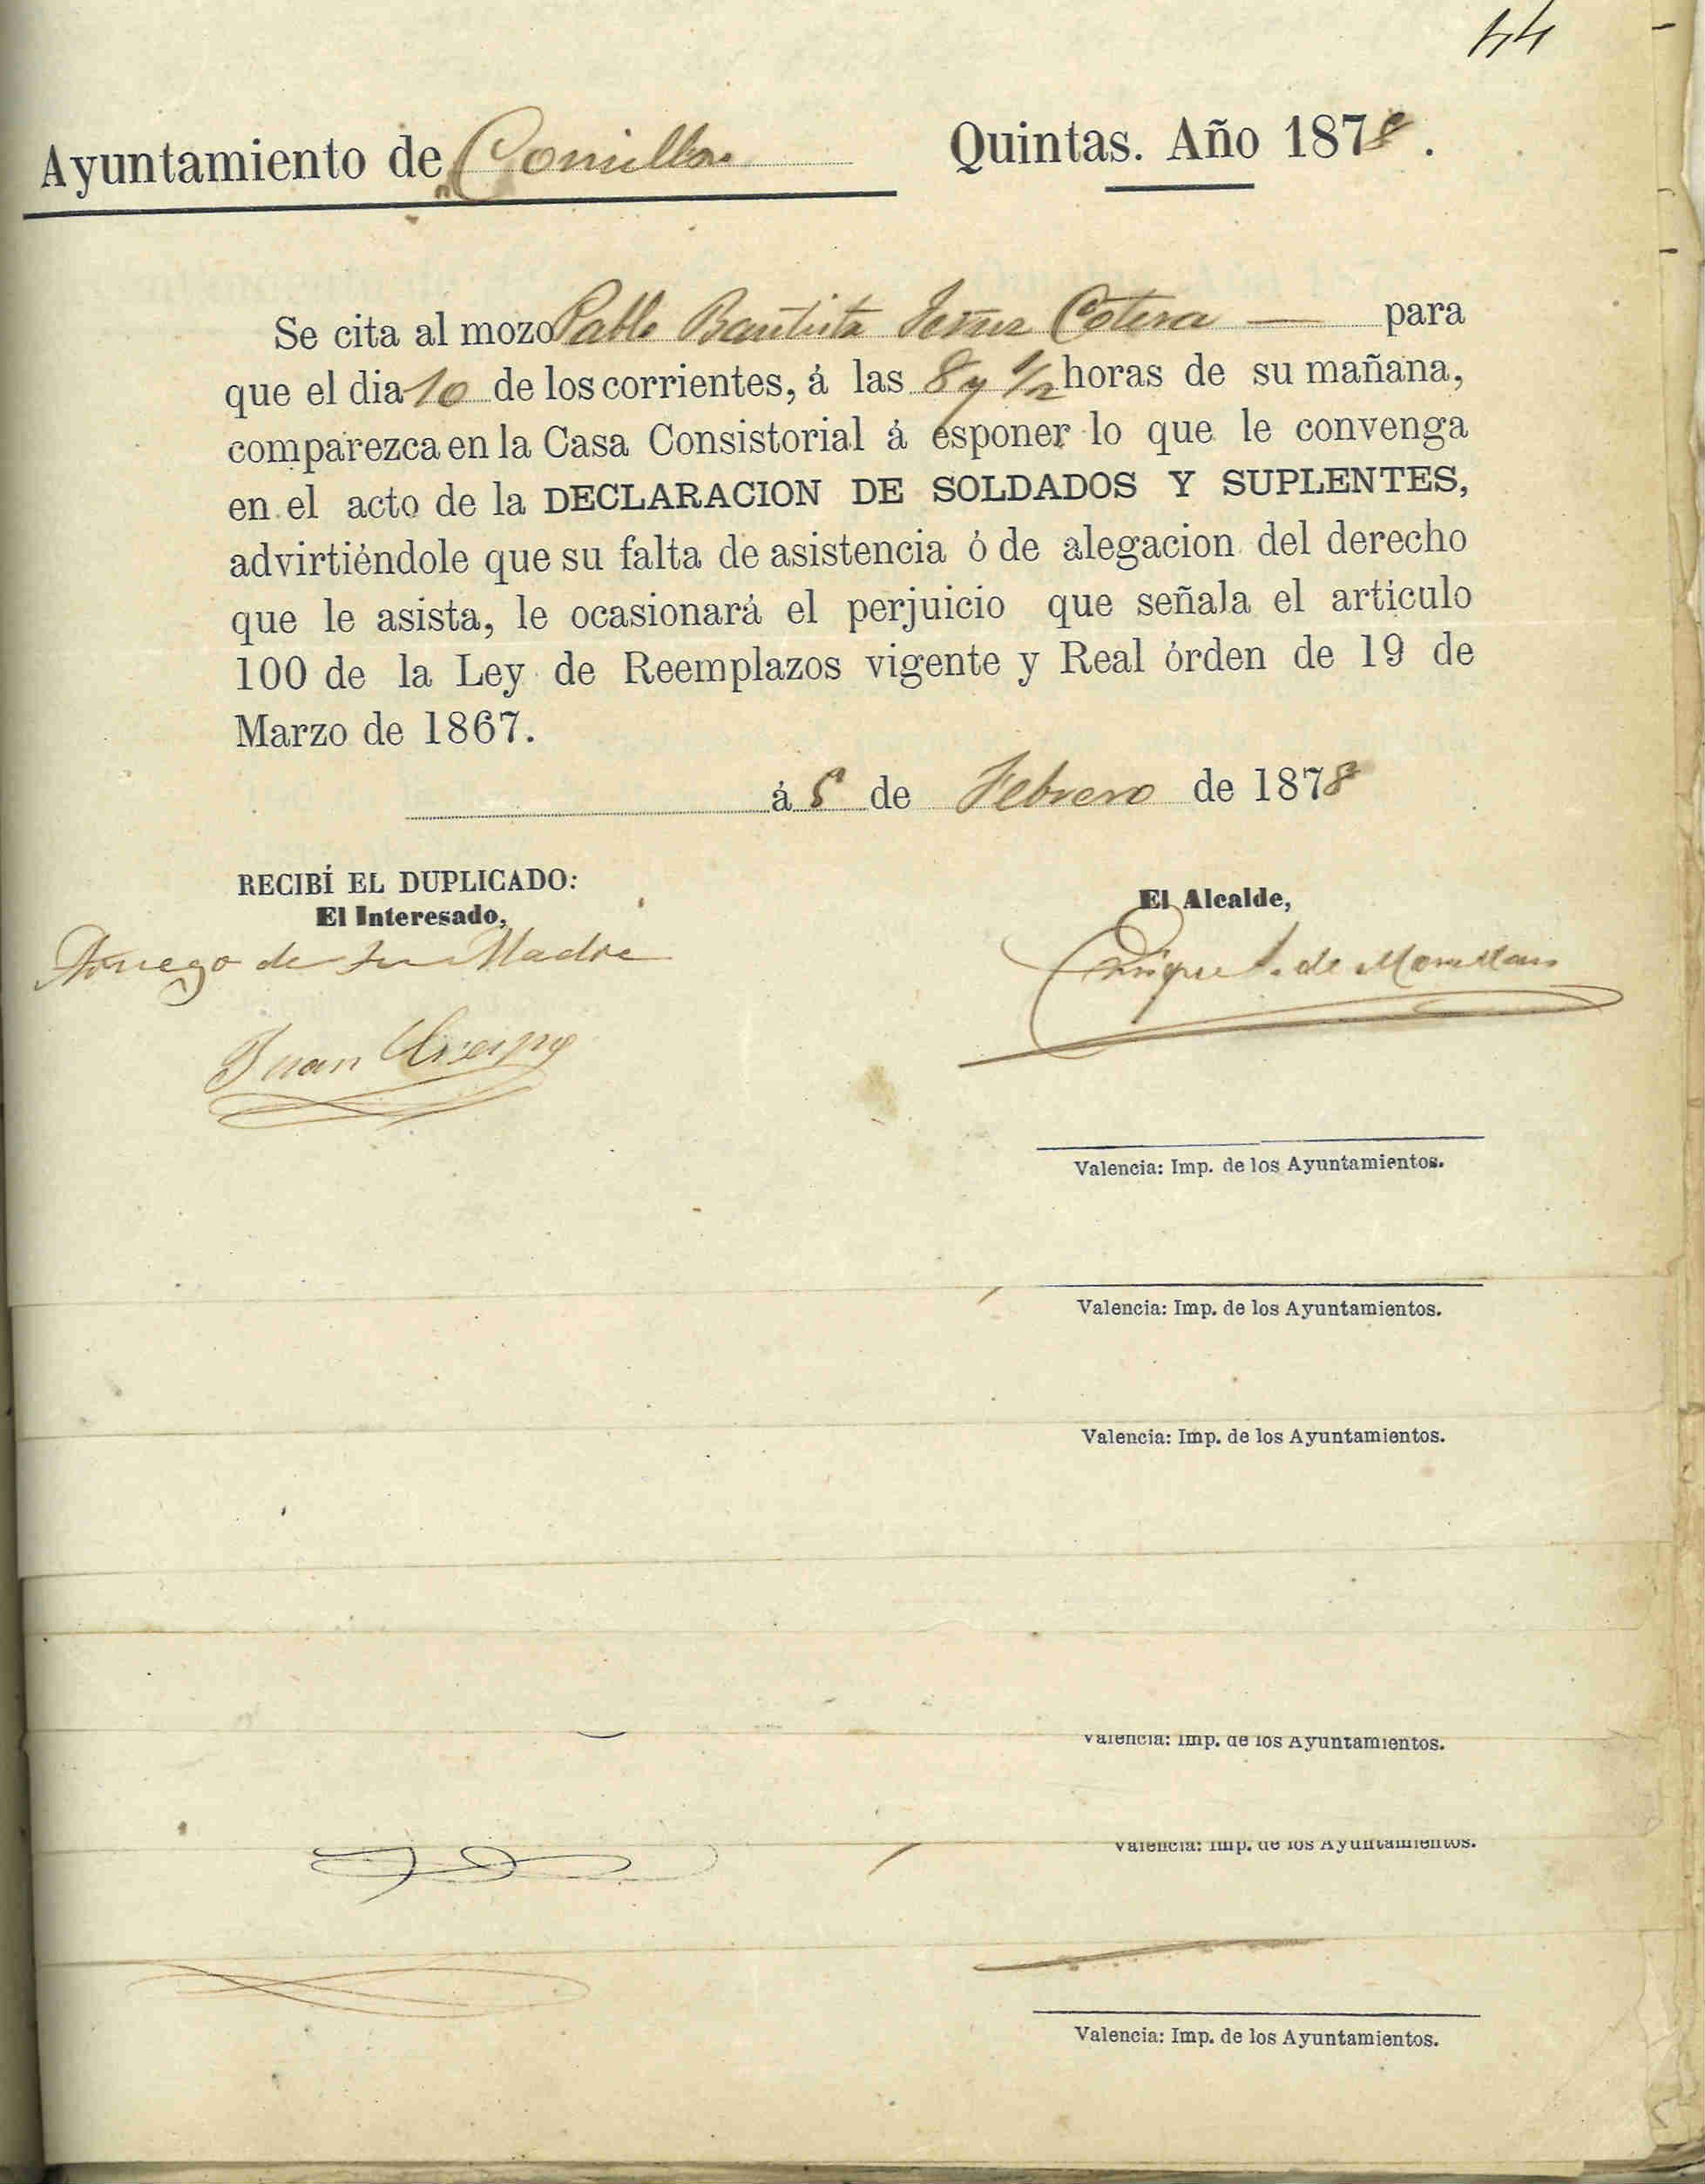 44
Ayuntamiento de Comillas
Quintas. Año 1878.
Se cita al mozo Pablo Bautista Cotera — para
que el dia 10 de los corrientes, á las 8 y 1/2 horas de su mañana,
comparezca en la Casa Consistorial á esponer lo que le convenga
en el acto de la DECLARACION DE SOLDADOS Y SUPLENTES,
advirtiéndole que su falta de asistencia ó de alegacion del derecho
que le asista, le ocasionará el perjuicio que señala el articulo
100 de la Ley de Reemplazos vigente y Real órden de 19 de
Marzo de 1867.
á de Febrero de 1878
RECIBÍ EL DUPLICADO:
El Interesado,
Aruego de su Madre
Juan
El Alcalde,
Enrique de
Valencia: Imp. de los Ayuntamientos.
Valencia: Imp. de los Ayuntamientos.
Valencia: Imp. de los Ayuntamientos.
Valencia: Imp. de los Ayuntamientos.
Valencia: Imp. de los Ayuntamientos.
Valencia: Imp. de los Ayuntamientos.